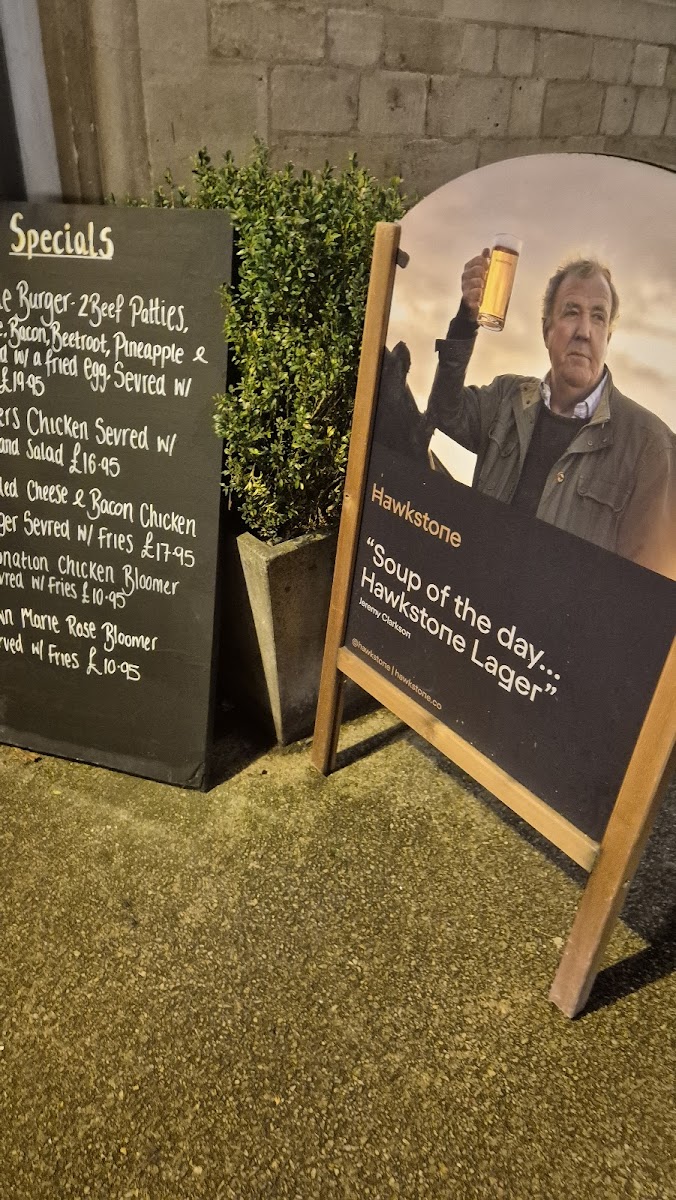 Specials
e Burger - 2 Beef Patties,
e, Bacon, Beetroot, Pineapple &
d w/ a fried egg. Sevred w/
£19.95
ers Chicken Sevred w/
and Salad £16.95
led Cheese & Bacon Chicken
ger Sevred w/ Fries £17.95
onation Chicken Bloomer
vred w/ Fries £10.95
wn Marie Rose Bloomer
rved w/ Fries £10.95
Hawkstone
“Soup of the day...
Hawkstone Lager”
Jeremy Clarkson
@hawkstone | hawkstone.co